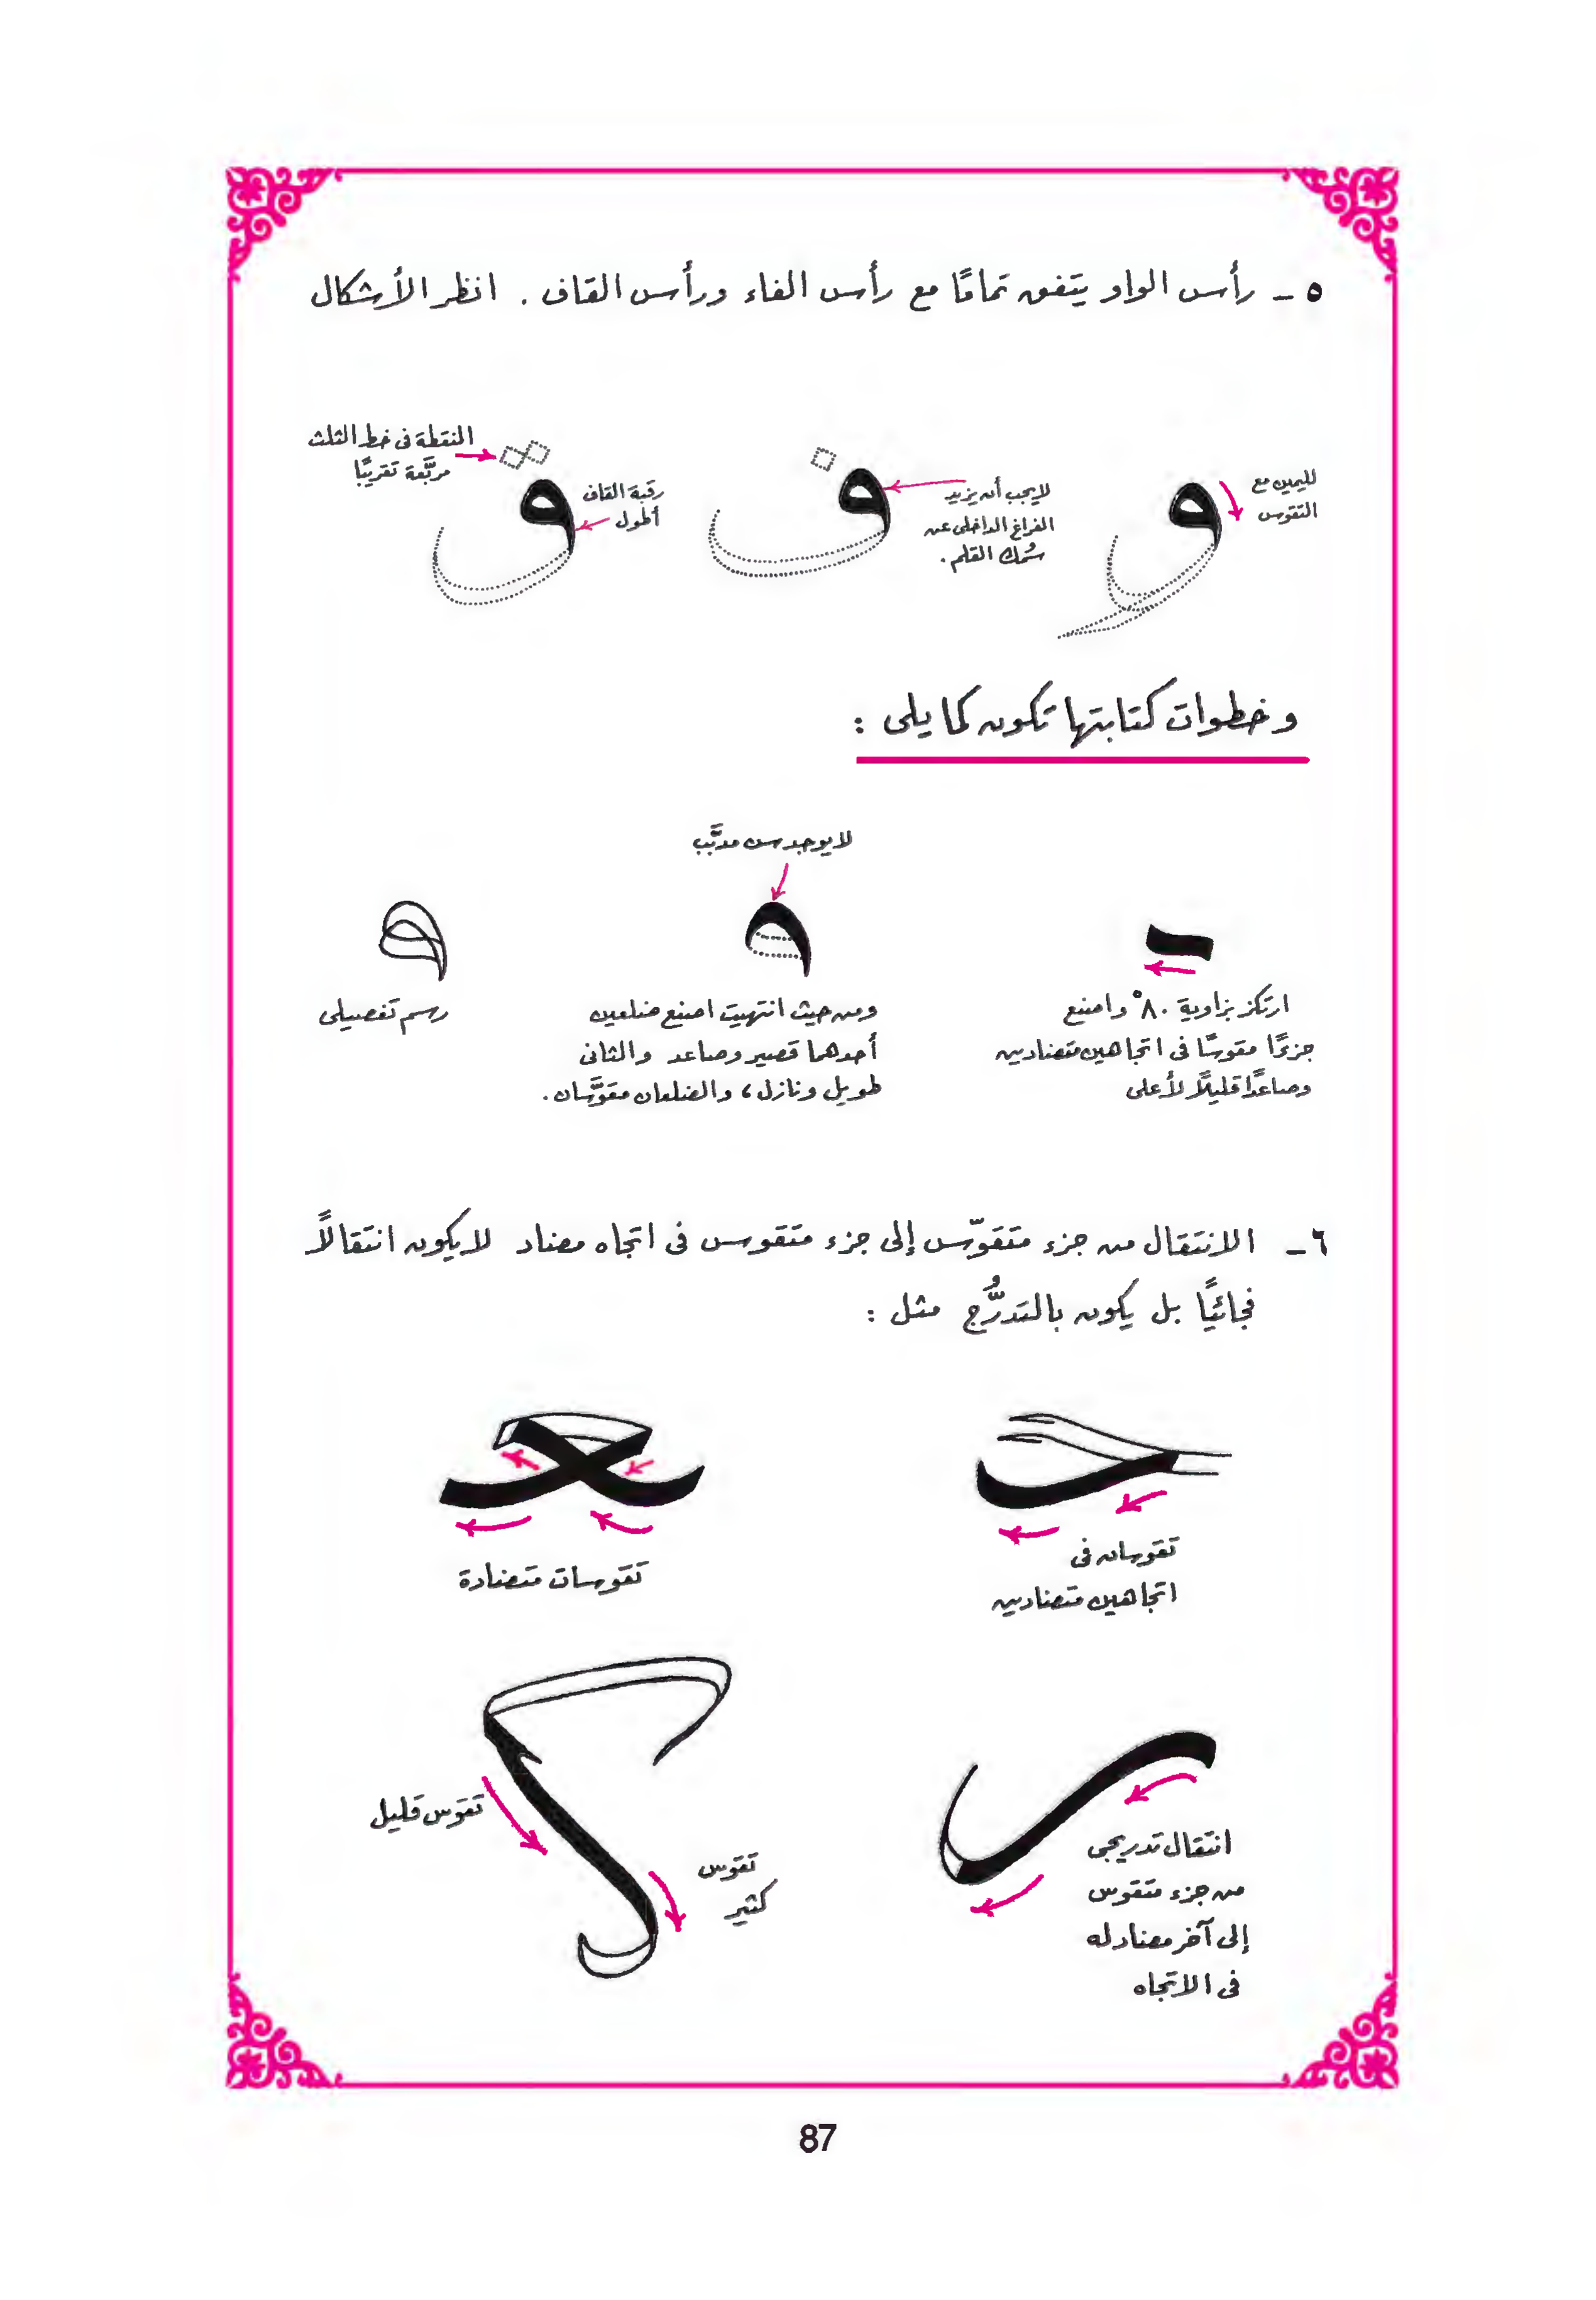 ٥ - رأس الواو يتفق تمامًا مع رأس الفاء ورأس القاف . انظر الأشكال
لليمين مع
التقوس
لا يجب أن يزيد
الفراغ الداخلى عن
سُمك القلم .
رقبة القاف
أطول
النقطة فى خط الثلث
مربَّعة تقريبًا
وخطوات كتابتها تكون كما يلى :
لا يوجد سن مدبَّب
ارتكز بزاوية ٨٠° واصنع
جزءًا مقوسًا فى اتجاهين متضادين
وصاعدًا قليلاً لأعلى
ومن حيث انتهيت اصنع ضلعين
أحدهما قصير وصاعد والثانى
طويل ونازل ، والضلعان مقوَّسان .
رسم تفصيلى
٦ - الانتقال من جزء متقوّس إلى جزء متقوس فى اتجاه مضاد لا يكون انتقالاً
فجائيًا بل يكون بالتدرُّج مثل :
تقوسان فى
اتجاهين متضادين
تقوسات متضادة
انتقال تدريجى
من جزء متقوس
إلى آخر مضاد له
فى الاتجاه
تقوس قليل
تقوس
كثير
87